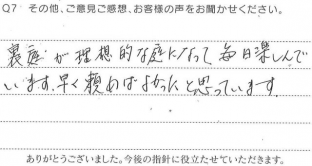 Q7 その他、ご意見ご感想、お客様の声をお聞かせください。
裏庭が理想的な庭になって毎日楽しんで
います。早く頼めばよかったと思っています。
ありがとうございました。今後の指針に役立たせていただきます。